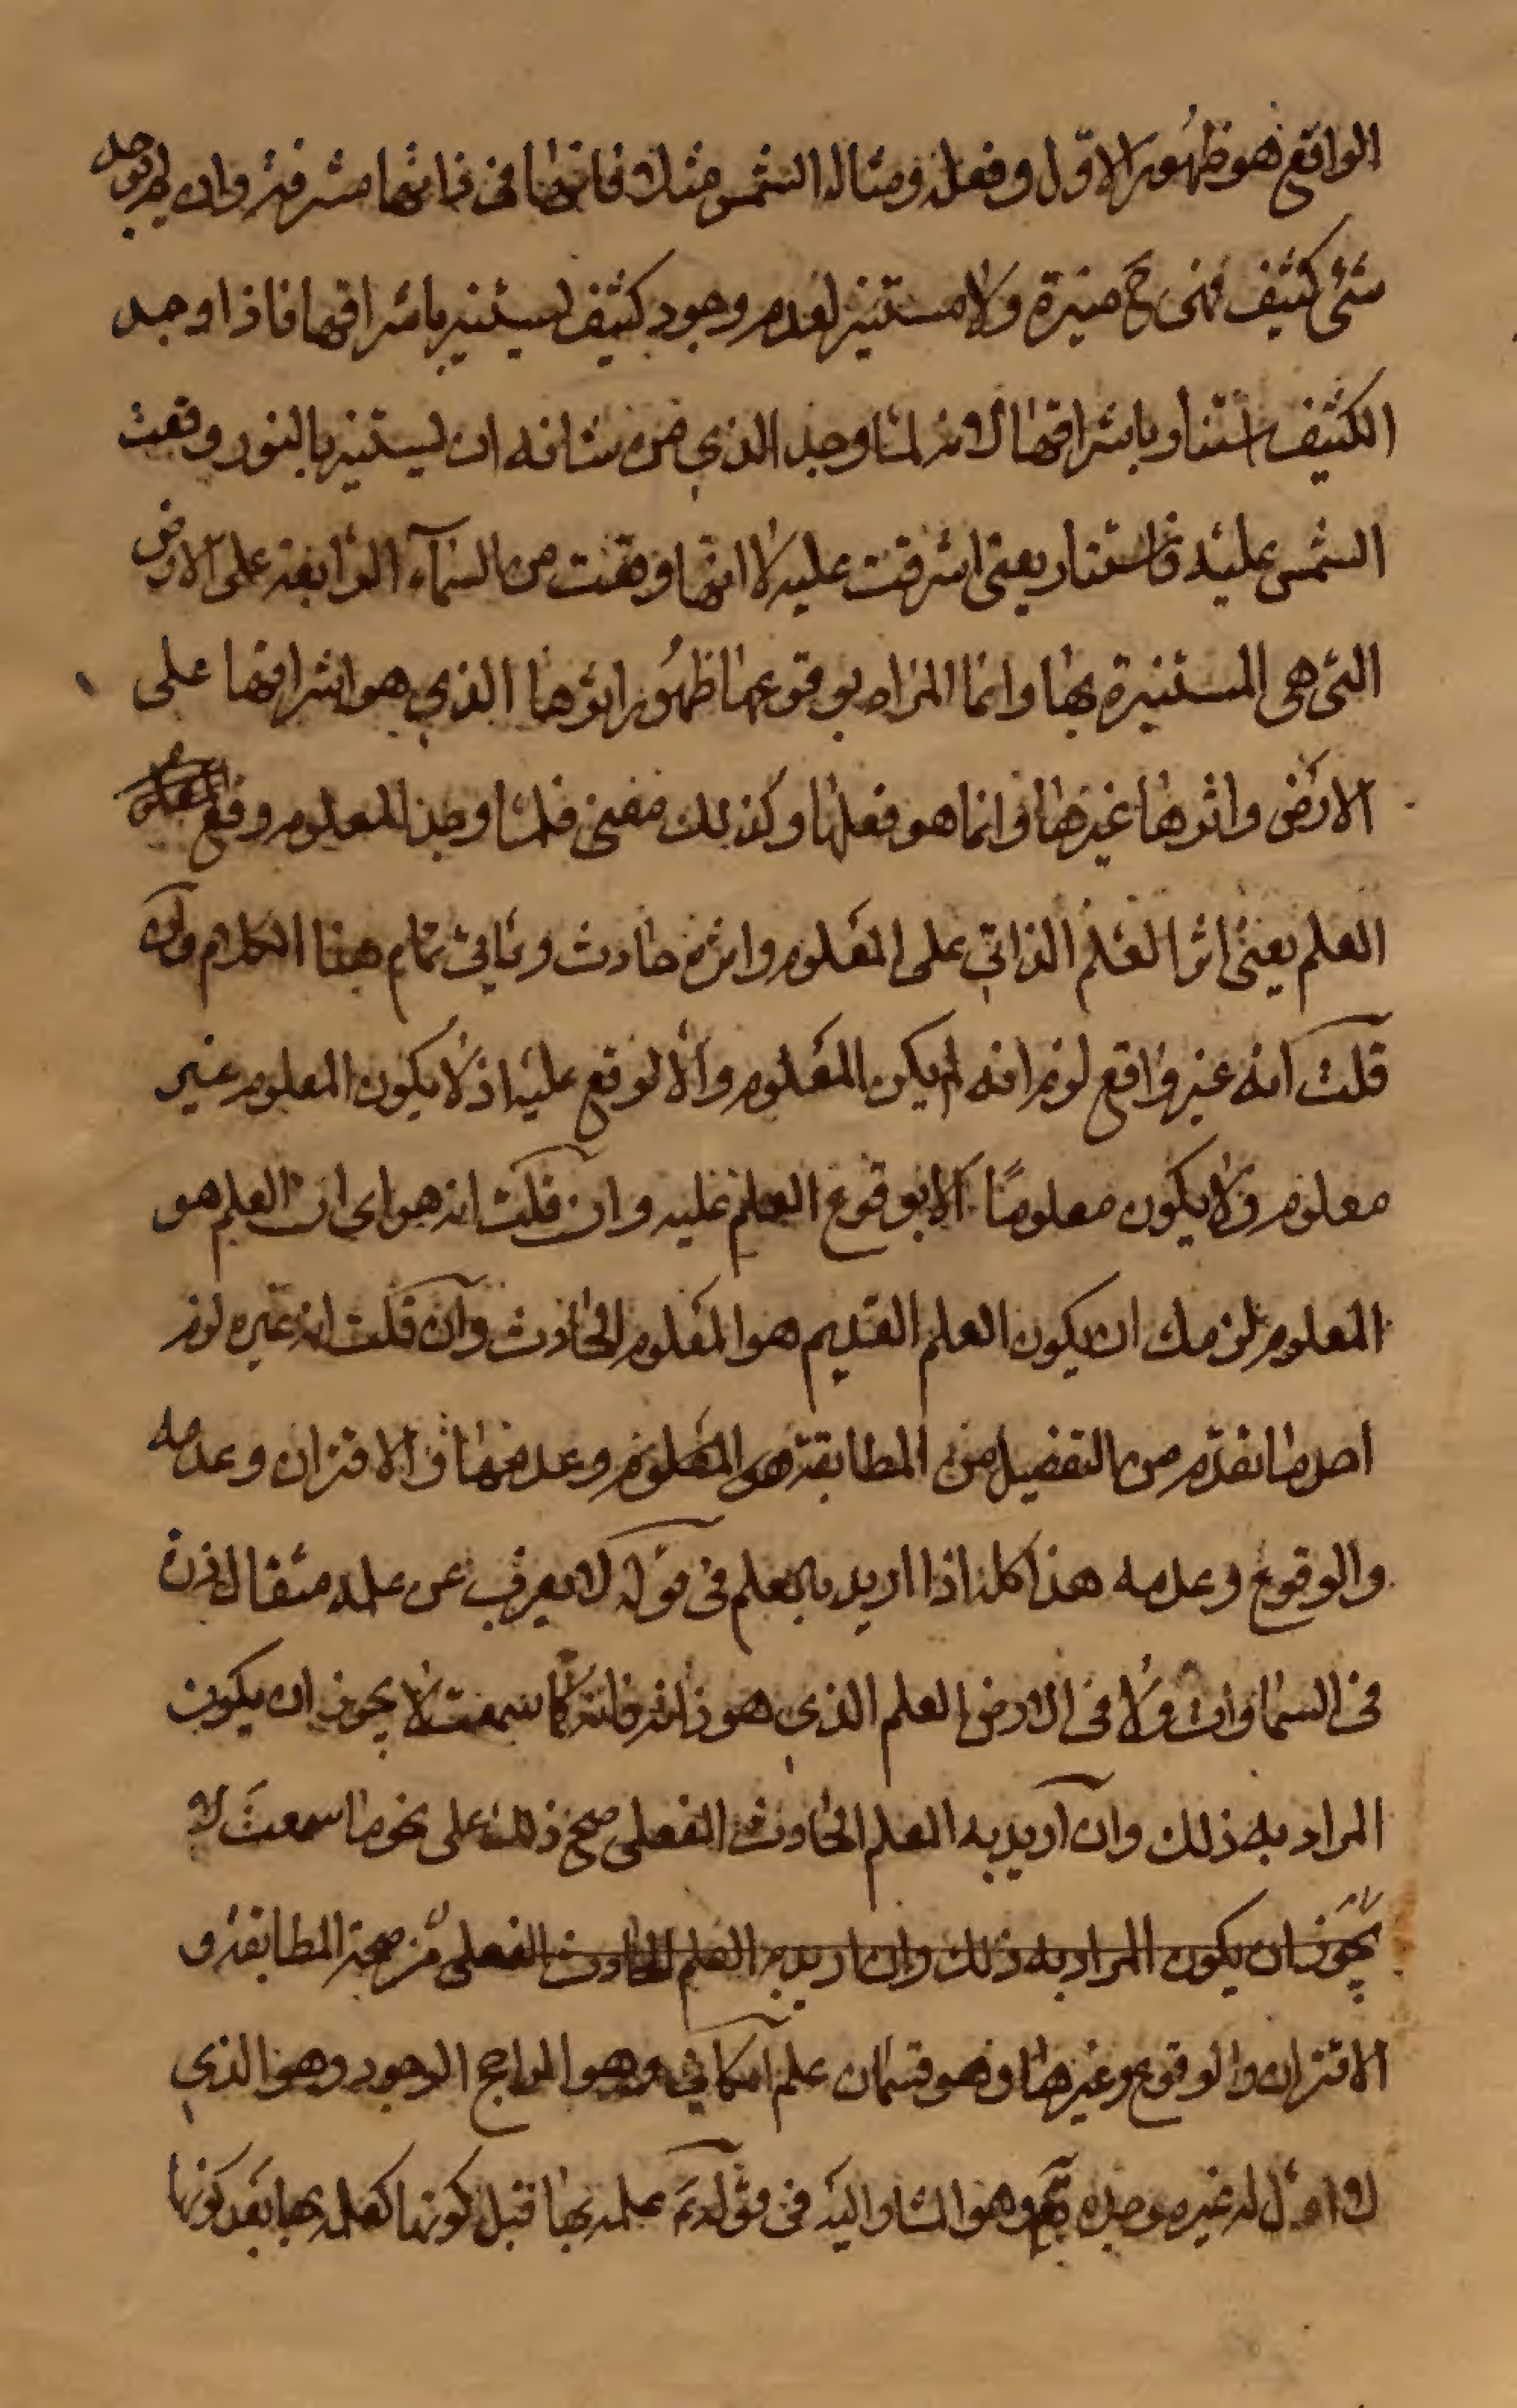 الواقع هو ظهور الاول وفعله ومثاله الشمس مثلا فانها في ذاتها مشرقة وان لم يوجد
شئ كثيف فهى ح منيرة ولا مستنير لعدم وجود كثيف يستنير باشراقها فاذا وجد
الكثيف استنار باشراقها لانه لما وجد الذي من شانه ان يستنير بالنور وقعت
الشمس عليه فاستنار يعني اشرقت عليه لا انها وقعت من السمآء الرابعة على الارض
التى هى المستنيرة بها وانما المراد بوقوعها ظهور اثرها الذي هو اشراقها على
الارض واثرها غيرها وانما هو فعلها وكذلك معنى فلما وجد المعلوم وقع
العلم يعني اثر العلم الذاتي على المعلوم واثره حادث وياتي تمام هذا الكلام وان
قلت انه غير واقع لزم انه لم يكن المعلوم والا لوقع عليه اذ لا يكون المعلوم غير
معلوم ولا يكون معلومًا الا بوقوع العلم عليه وان قلت انه هو اى ان العلم هو
المعلوم لزمك ان يكون العلم القديم هو المعلوم الحادث وان قلت انه غيره لزم
احد ما تقدّم من التفصيل من المطابقة للمعلوم وعدمها والاقتران وعدمه
والوقوع وعدمه هذا كله اذا اريد بالعلم في قوله لا يعزب عن علمه مثقال ذرة
في السماوات ولا في الارض العلم الذي هو ذاته فانه كما سمعت لا يجوز ان يكون
المراد به ذلك وان اريد به العلم الحادث الفعلي صح ذلك على نحو ما سمعت لا
يجوز ان يكون المراد به ذلك وان اريد به العلم الحادث الفعلي من صحة المطابقة و
الاقتران والوقوع وغيرها وهو قسمان علم امكاني وهو الراجح الوجود وهو الذي
لا اول له غيره موجده تع وهو المشار اليه في قوله ع علمه بها قبل كونها كعلمه بها بعد كونها